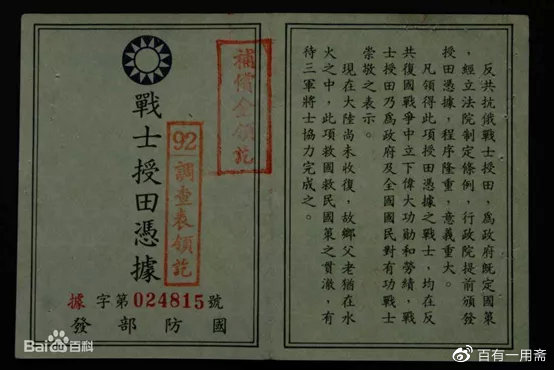 反共抗俄戰士授田，為政府既定國策
，經立法院制定條例，行政院提前頒發
授田憑據，程序隆重，意義重大。
凡領得此項授田憑據之戰士，均在反
共復國戰爭中立下偉大功勛和勞績，戰
士授田乃為政府及全國國民對有功戰士
崇敬之表示。
現在大陸尚未收復，故鄉父老猶在水
火之中，此項救國救民國策之貫澈，有
待三軍將士協力完成之。
補償金領訖
92調查表領訖
戰士授田憑據
據字第024815號
國防部發
Bai百科
百有一用斋